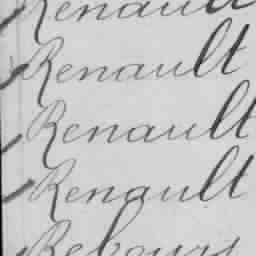 Renault
Renault
Renault
Renault
Rebours